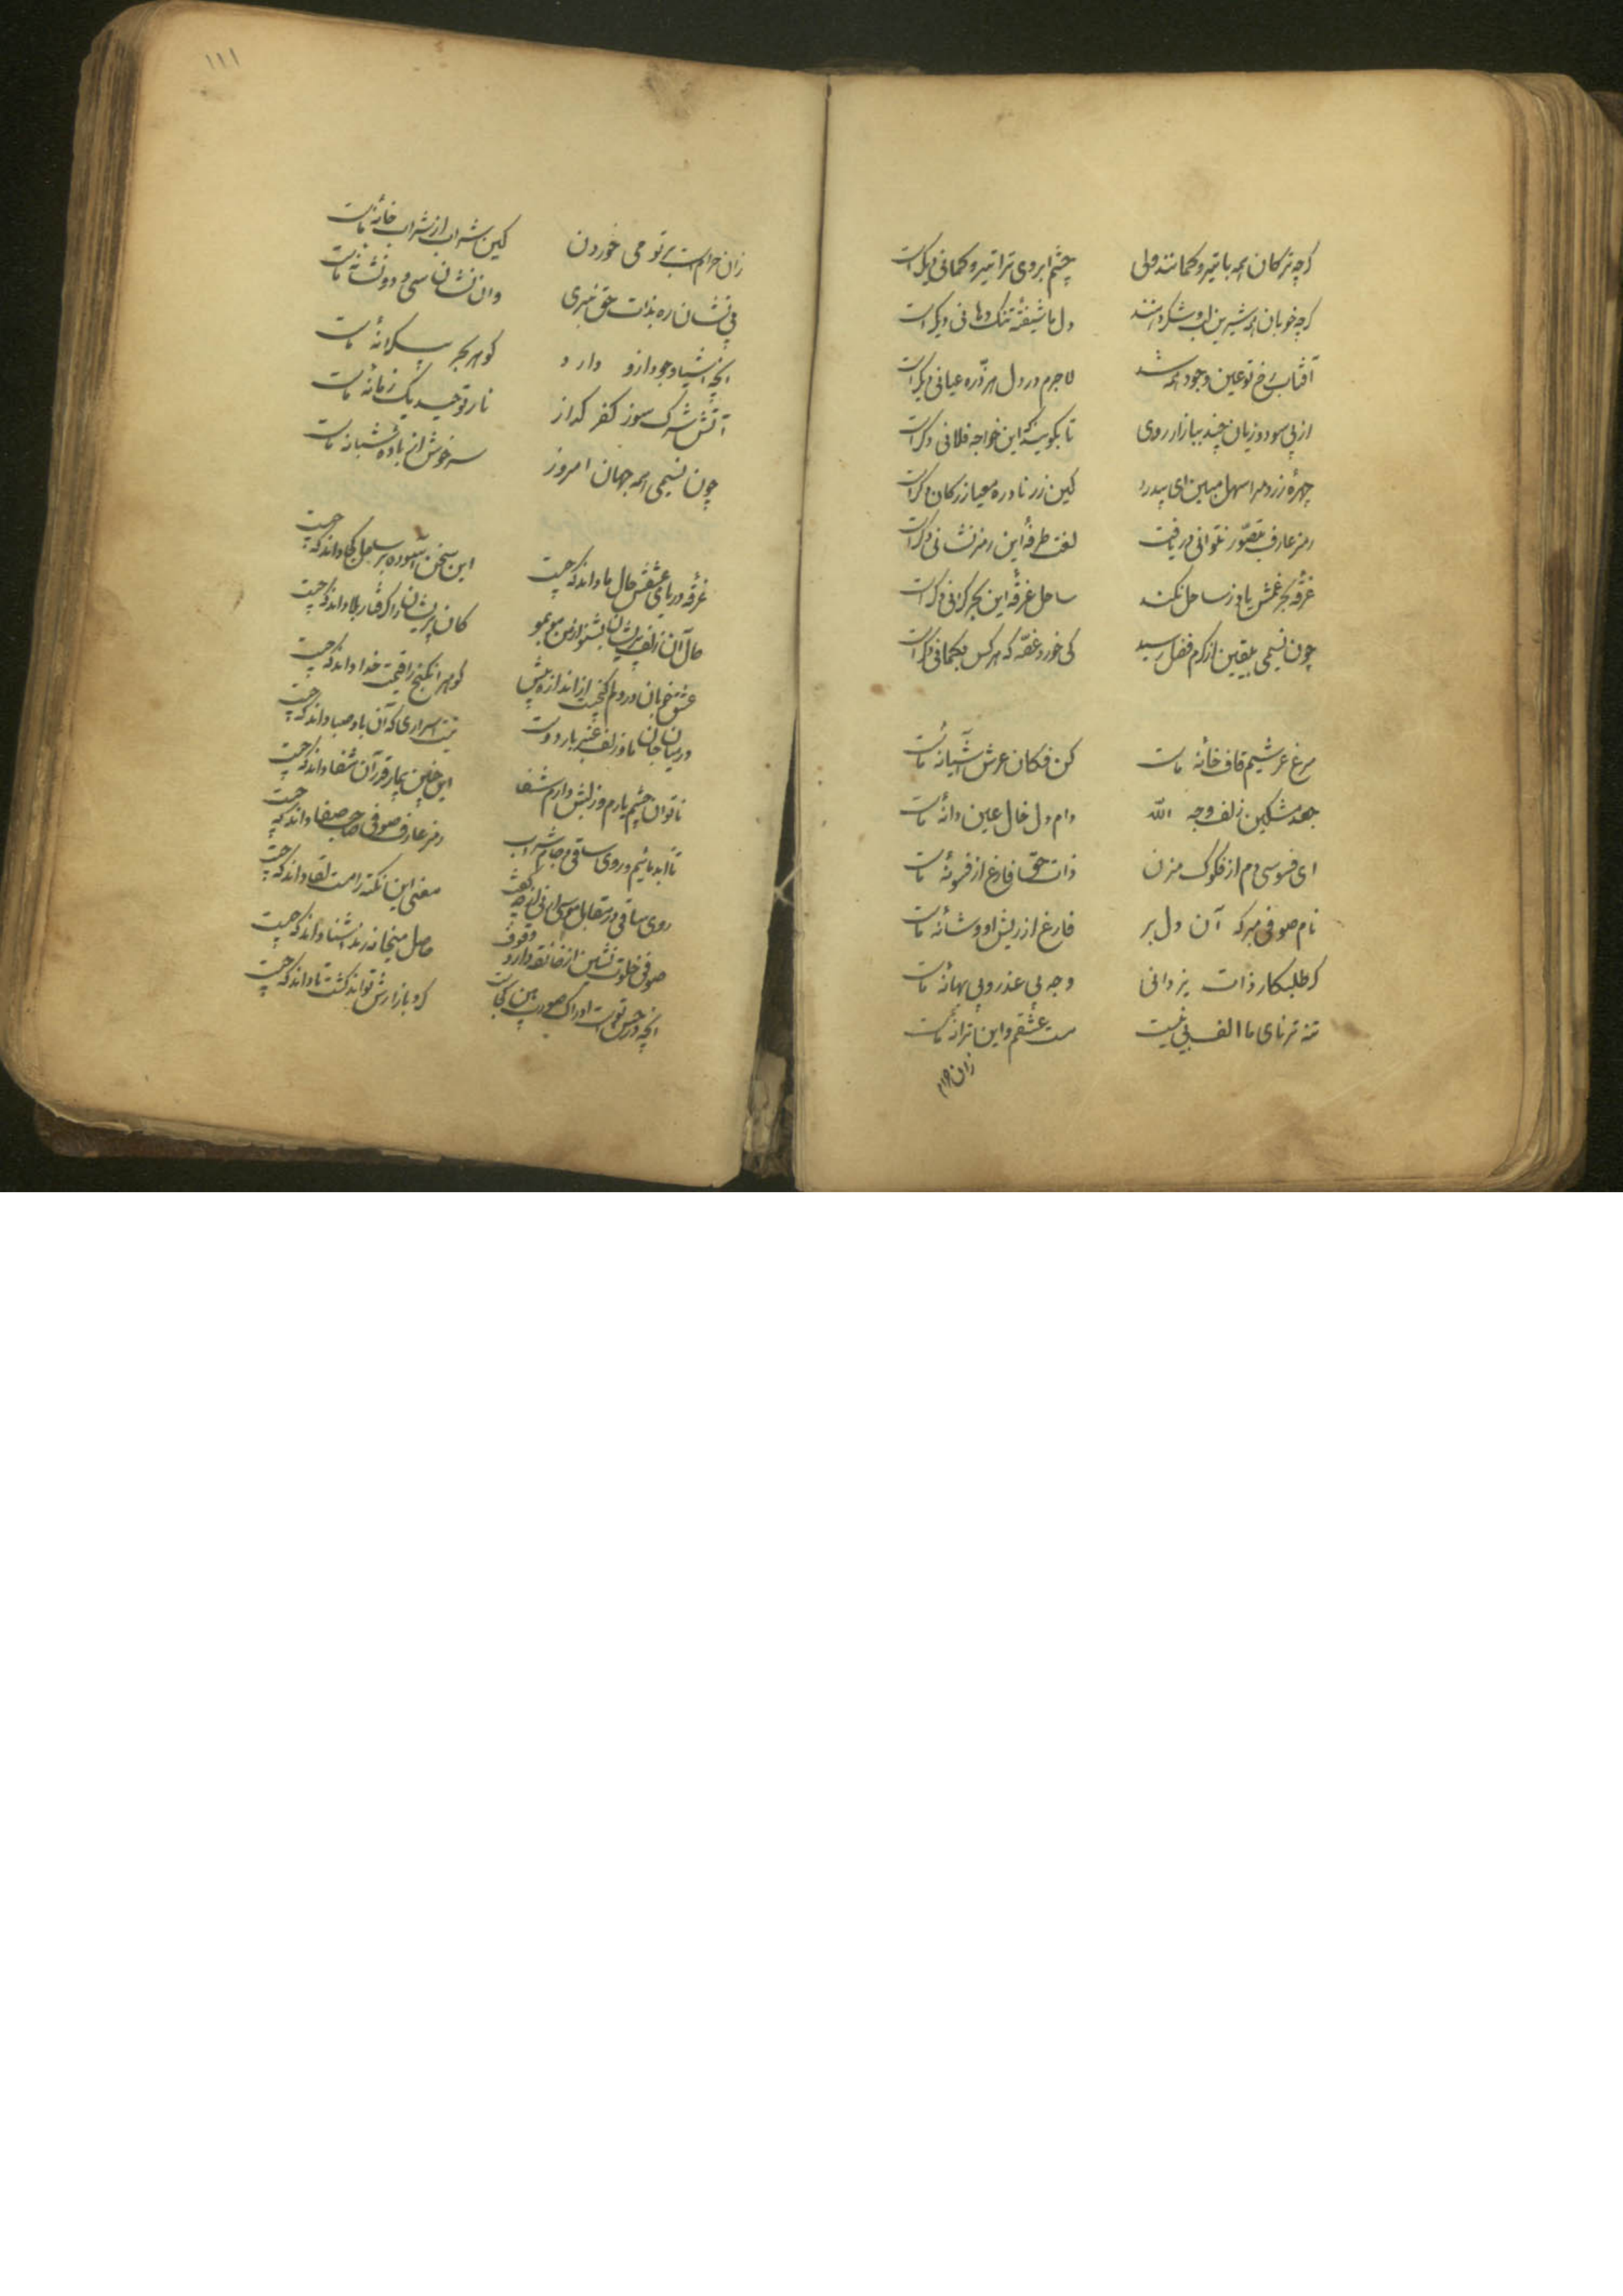 گرچه ترکان همه با تیر و کمانند ولی چشم ابروی ترا تیر و کمانی دیگر است
گرچه خوبان همه شیرین لب و شکر دهنند دل ما شیفته تنک دهانی دیگر است
آفتاب رخ تو عین وجود همه شد لاجرم در دل هر ذره عیانی دیگر است
از پی سود و زیان چند ببازار روی تا بگویند که این خواجه فلانی دگر است
چهره زرد مرا سهل مبین ای پدر کین زر نادره معیار ز کان دگر است
رمز عارف بتصور نتوانی دریافت لغت طرفه این رمز نشانی دگر است
غرقه بحر غمش یاد ز ساحل نکند ساحل غرقه این بحر کرانی دگر است
چون نسیمی بیقین از کرم فضل رسید کی خورد غصه که هر کس بگمانی دگر است
مرغ عرشیم قاف خانه ماست کن فکان عرش آشیانه ماست
جعد مشکین زلف وجه الله دام دل خال عین دانه ماست
ای فسوسی دم از فلوک مزن ذات حق فارغ از فسونه ماست
نام صوفی مبر که آن دل بر فارغ از ریش او و شانه ماست
کر طلبکار ذات یزدانی وجه بی عذر و بی بهانه ماست
تنه ترنای ما الف بی نیست مست عشقم و این ترانه ماست
زان حرام
١١١
زان حرامست بر تو می خوردن کین شراب از شراب خانه ماست
بی نشان ره بذات حق نبری وان نشان سی و دو نشانه ماست
انچه اشیا وجود ازو دارد گوهر بحر بیکرانه ماست
آتش شرک سوز کفر گداز نار توحید یک زمانه ماست
چون نسیمی همه جهان امروز سرخوش از باده شبانه ماست
غرقه دریای عشقش حال ما داند که چیست این سخن آسوده بر ساحل کجا داند که چیست
حال آن زلف پریشان بشنو از من مو بمو کان پریشان را گرفتار بلا داند که چیست
عشق خوبان در دلم گنجیست از اندازه بیش گوهر این گنج را قیمت خدا داند که چیست
در میان جان ما و زلف عنبر بار دوست نیست اسراری که آن باد صبا داند که چیست
ناتوان چشم یارم وز لبش دارم شفا این چنین بیمار قرآن شفا داند که چیست
تا ابد مائیم و روی ساقی و جام شراب رمز عارف صوفی صاحب صفا داند که چیست
روی ساقی در مقابل موسی ارنی از چه گفت معنی این نکته را مست لقا داند که چیست
صوفی خلوت نشین از خانقه دارد وقوف حاصل میخانه رند آشنا داند که چیست
انچه در حسن تو هست ادراک صورت بین کجاست گرد بازارش تواند گشت تا داند که چیست